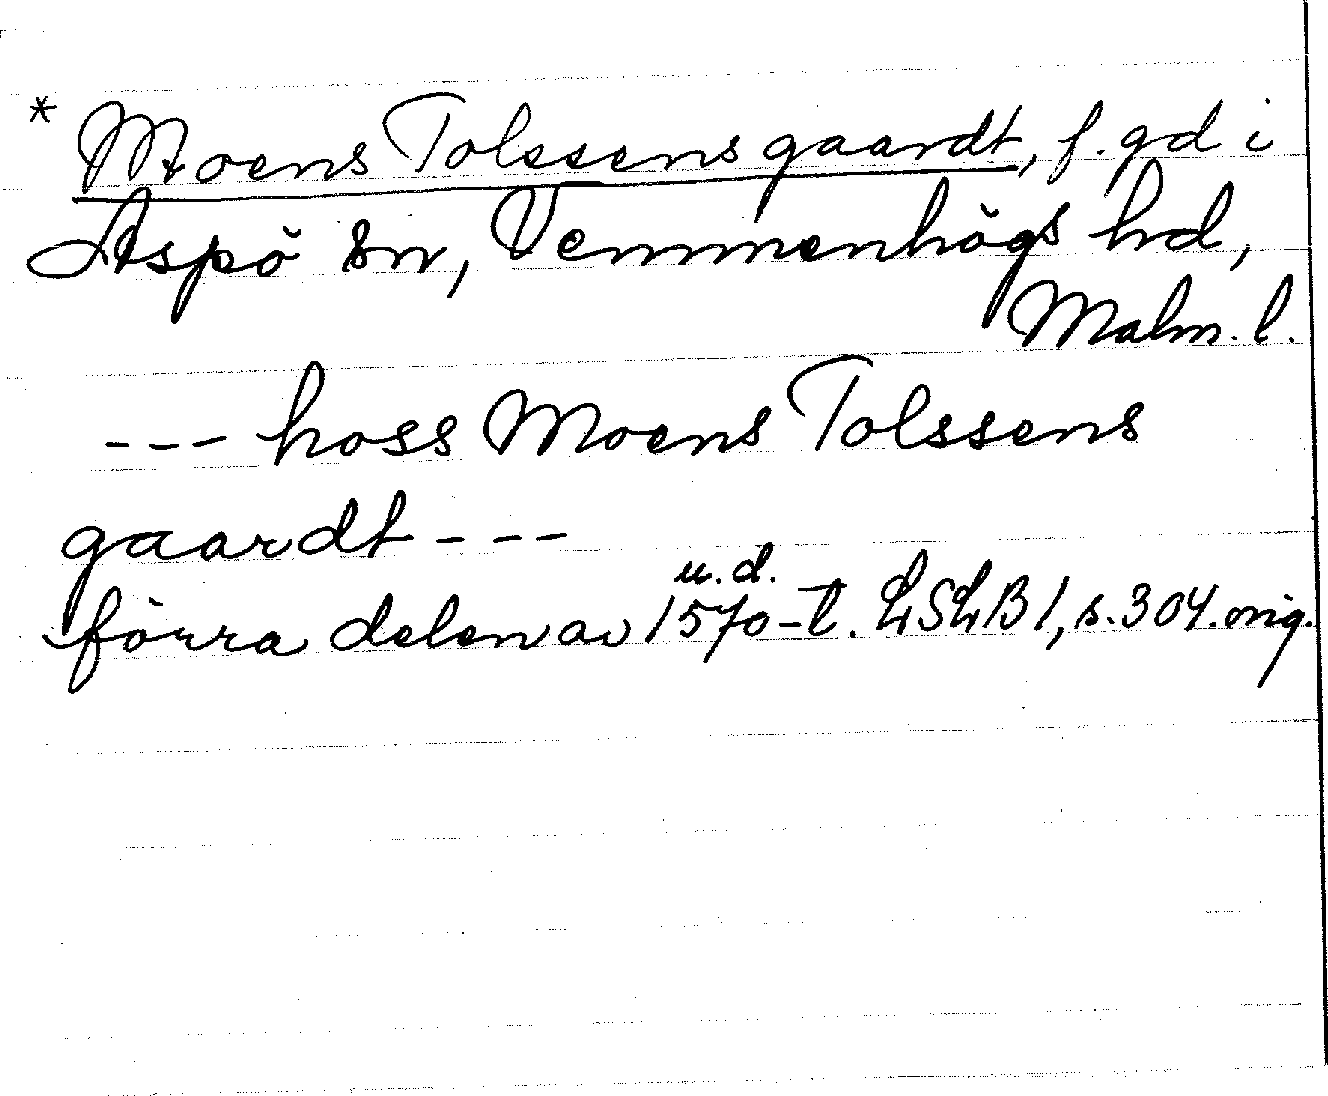 * Moens Tolssens gaardt, f. gd i
Aspö sn, Vemmenhögs hd,
Malm. l.
--- hoss Moens Tolssens
gaardt ---
u. d.
förra delen av 1570-t. LSLB 1, s. 304. orig.